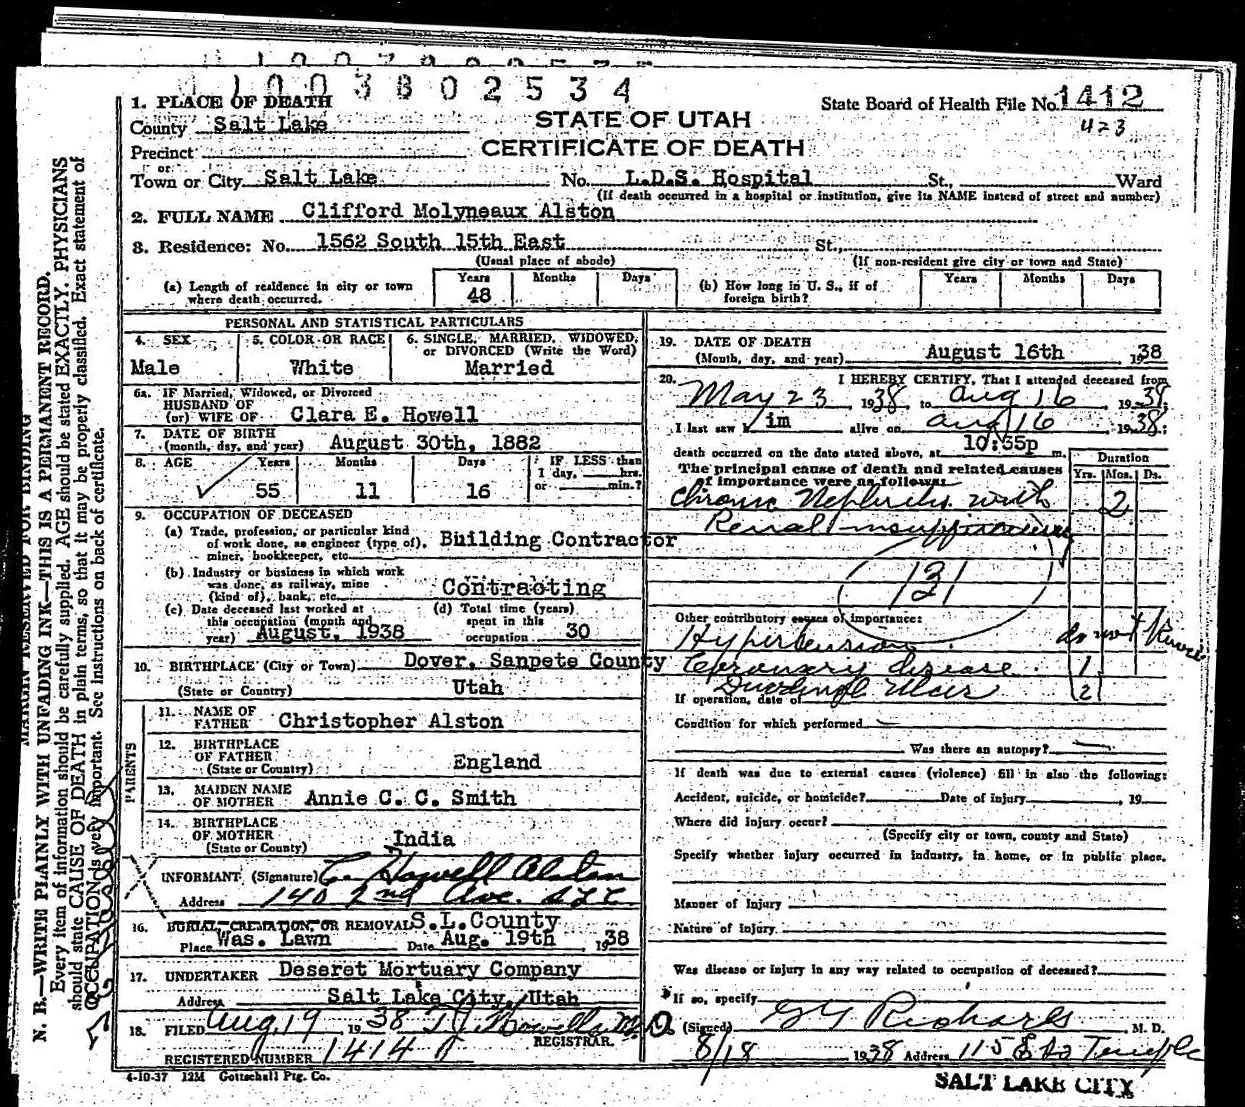 1003802534
1. PLACE OF DEATH
County Salt Lake
State Board of Health File No. 1412
423
STATE OF UTAH
CERTIFICATE OF DEATH
Precinct
or
Town or City Salt Lake No. L.D.S. Hospital St., Ward
(If death occurred in a hospital or institution, give its NAME instead of street and number)
2. FULL NAME Clifford Molyneaux Alston
3. Residence: No. 1562 South 15th East St.,
(Usual place of abode) (If non-resident give city or town and State)
(a) Length of residence in city or town where death occurred. Years 48 Months Days
(b) How long in U. S., if of foreign birth? Years Months Days
PERSONAL AND STATISTICAL PARTICULARS
4. SEX 5. COLOR OR RACE 6. SINGLE, MARRIED, WIDOWED, or DIVORCED (Write the Word)
Male White Married
6a. IF Married, Widowed, or Divorced
HUSBAND OF
(or) WIFE OF Clara E. Howell
7. DATE OF BIRTH
(month, day, and year) August 30th, 1882
8. AGE Years Months Days IF LESS than 1 day, hrs. or min.?
55 11 16
9. OCCUPATION OF DECEASED
(a) Trade, profession, or particular kind
of work done, as engineer (type of), Building Contractor
miner, bookkeeper, etc.
(b) Industry or business in which work
was done, as railway, mine
(kind of), bank, etc. Contracting
(c) Date deceased last worked at this occupation (month and year) August, 1938
(d) Total time (years) spent in this occupation 30
10. BIRTHPLACE (City or Town) Dover, Sanpete County
(State or Country) Utah
PARENTS
11. NAME OF
FATHER Christopher Alston
12. BIRTHPLACE
OF FATHER
(State or Country) England
13. MAIDEN NAME
OF MOTHER Annie C. C. Smith
14. BIRTHPLACE
OF MOTHER
(State or Country) India
INFORMANT (Signature) C. Howell Alston
Address 140 2nd Ave. SLC
16. BURIAL, CREMATION, OR REMOVAL S.L. County
Place Was. Lawn Date Aug. 19th 1938
17. UNDERTAKER Deseret Mortuary Company
Address Salt Lake City, Utah
18. FILED Aug 19 1938 T J Howells M.D.
REGISTRAR.
REGISTERED NUMBER 1414
4-10-37 12M Gottschall Ptg. Co.
19. DATE OF DEATH
(Month, day, and year) August 16th 1938
20. I HEREBY CERTIFY, That I attended deceased from
May 23 1938, to Aug 16, 1938;
I last saw him alive on Aug 16 1938;
death occurred on the date stated above, at 10:55p m.
Duration
Yrs. Mos. Ds.
The principal cause of death and related causes
of importance were as follows:
Chronic Nephritis with 2
Renal insufficiency
131
Other contributory causes of importance:
Hypertension do not know
Coronary disease 1
Duodenal Ulcer 2
If operation, date of
Condition for which performed
Was there an autopsy?
If death was due to external causes (violence) fill in also the following:
Accident, suicide, or homicide? Date of injury , 19
Where did injury occur?
(Specify city or town, county and State)
Specify whether injury occurred in industry, in home, or in public place.
Manner of Injury
Nature of Injury
Was disease or injury in any way related to occupation of deceased?
If so, specify
(Signed) G G Richards M. D.
8/18 1938 Address 115 E So Temple
SALT LAKE CITY
MARGIN RESERVED FOR BINDING
N. B.—WRITE PLAINLY WITH UNFADING INK—THIS IS A PERMANENT RECORD.
Every item of information should be carefully supplied. AGE should be stated EXACTLY. PHYSICIANS
should state CAUSE OF DEATH in plain terms, so that it may be properly classified. Exact statement of
OCCUPATION is very important. See instructions on back of certificate.